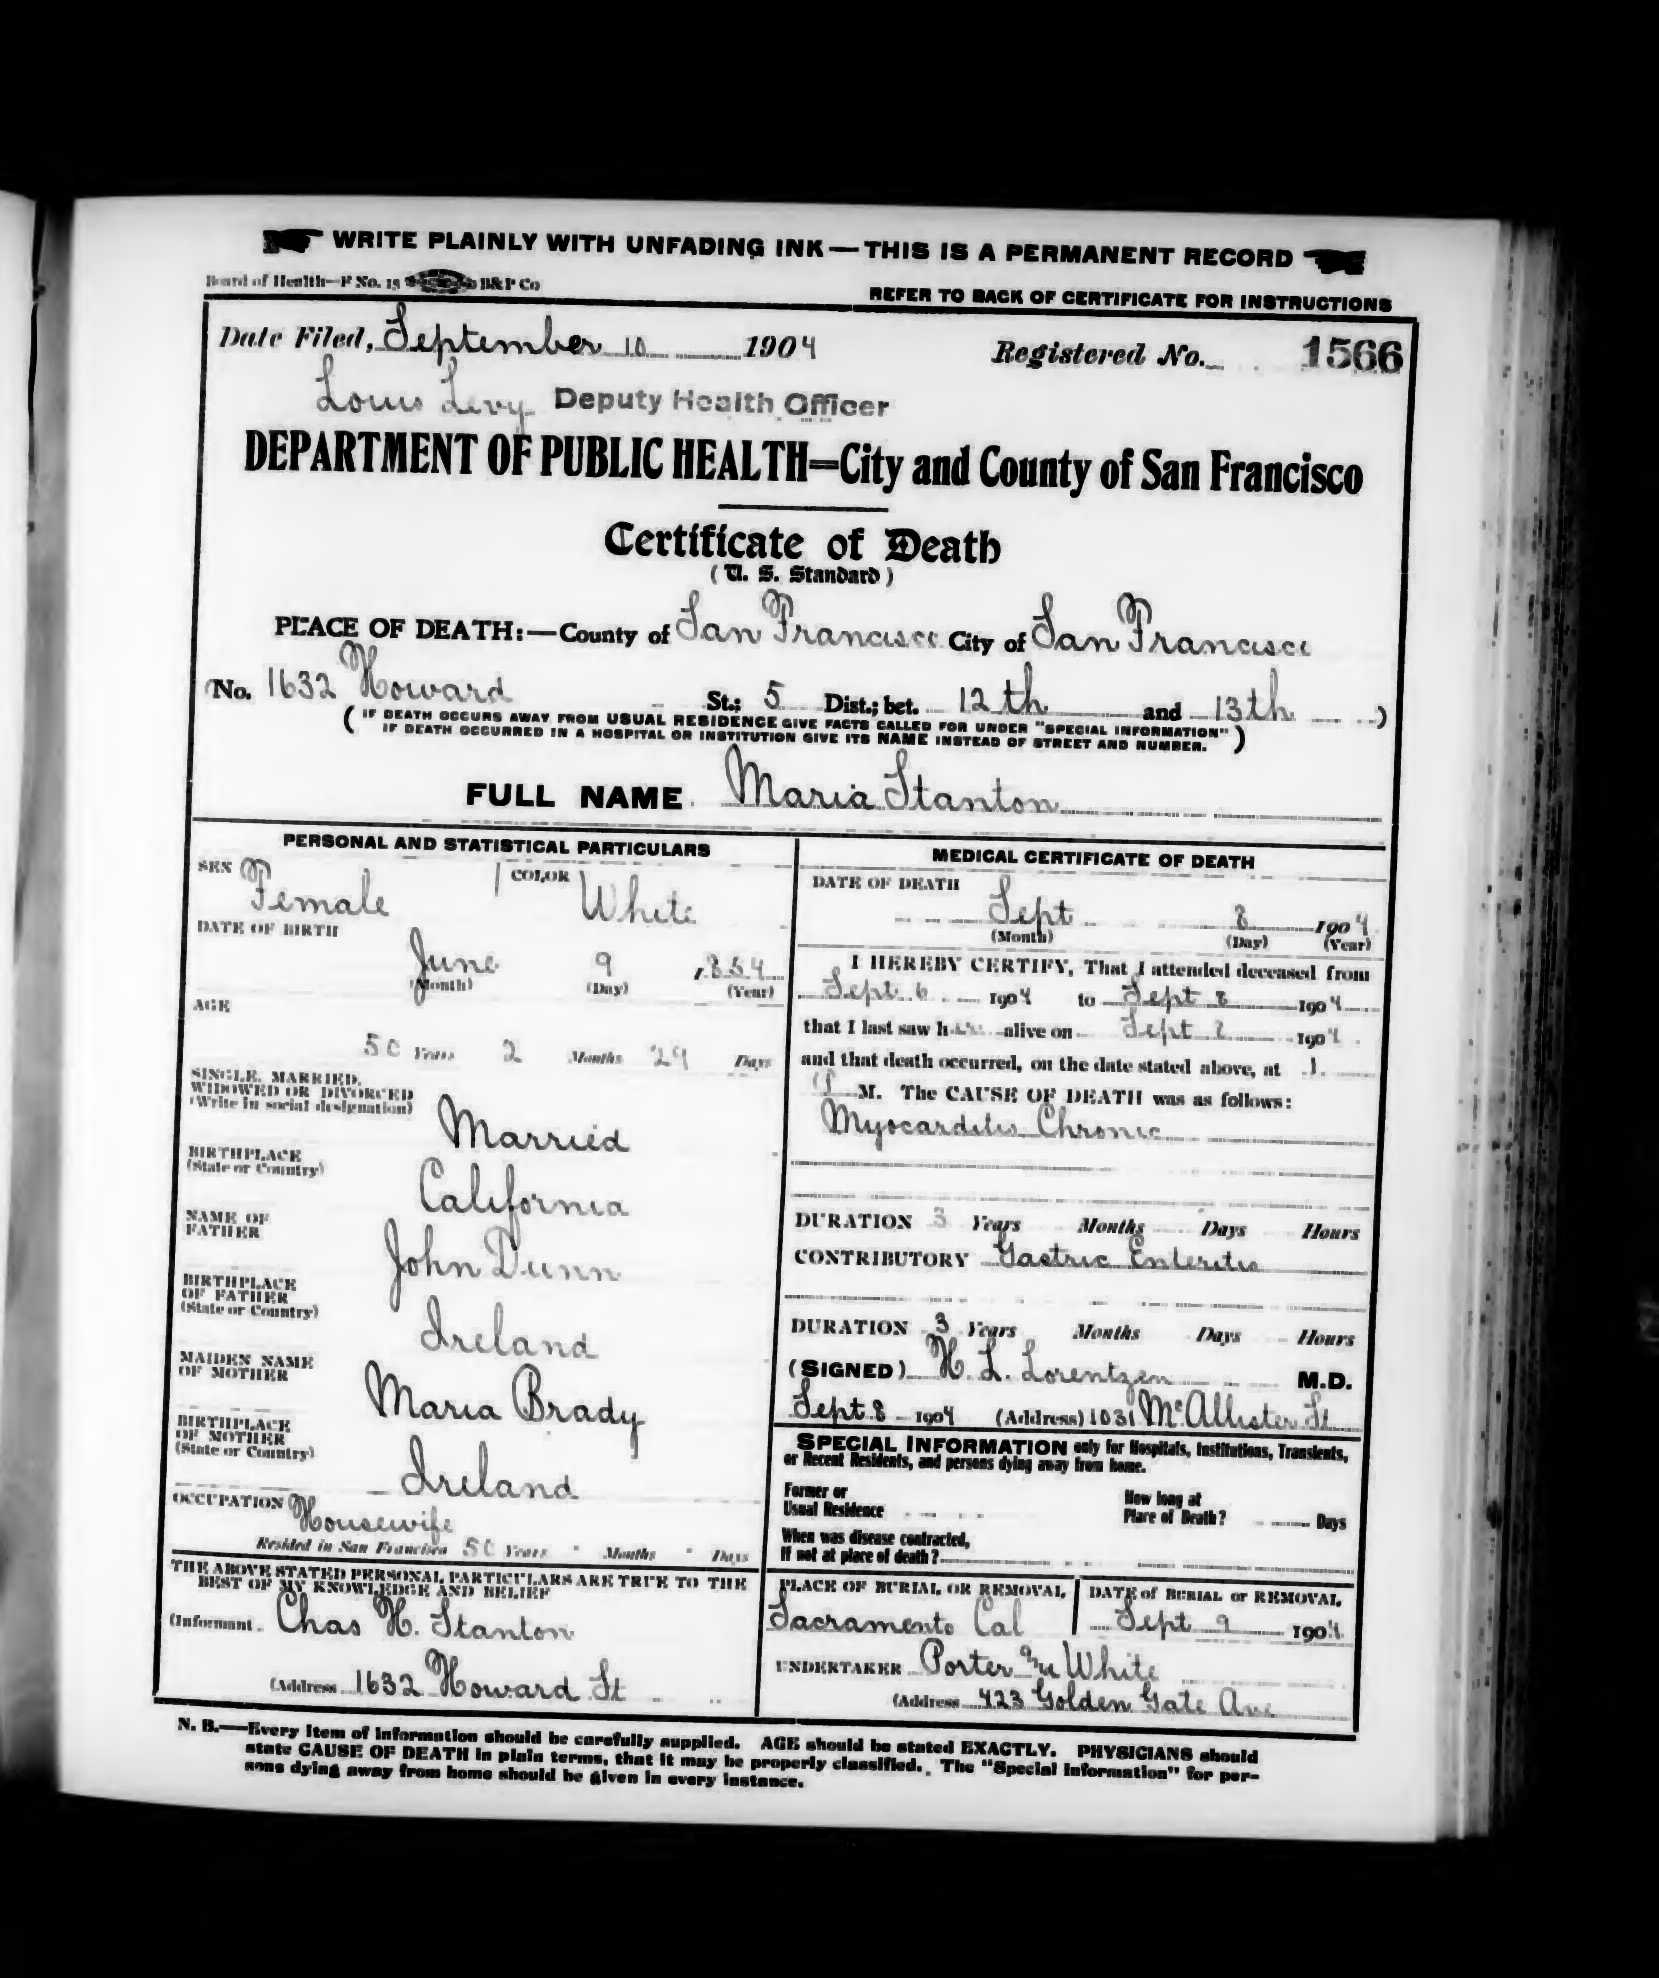 WRITE PLAINLY WITH UNFADING INK—THIS IS A PERMANENT RECORD
Board of Health—F No. 15 B&P Co
REFER TO BACK OF CERTIFICATE FOR INSTRUCTIONS
Date Filed, September 10 1904 Registered No. 1566
Louis Levy Deputy Health Officer
DEPARTMENT OF PUBLIC HEALTH=City and County of San Francisco
Certificate of Death
(U. S. Standard)
PLACE OF DEATH:—County of San Francisco City of San Francisco
(No. 1632 Howard St.; 5 Dist.; bet. 12th and 13th )
( IF DEATH OCCURS AWAY FROM USUAL RESIDENCE GIVE FACTS CALLED FOR UNDER "SPECIAL INFORMATION"
IF DEATH OCCURRED IN A HOSPITAL OR INSTITUTION GIVE ITS NAME INSTEAD OF STREET AND NUMBER. )
FULL NAME Maria Stanton
PERSONAL AND STATISTICAL PARTICULARS
SEX Female COLOR White
DATE OF BIRTH
June 9 1854
(Month) (Day) (Year)
AGE
50 Years 2 Months 29 Days
SINGLE, MARRIED,
WIDOWED OR DIVORCED
(Write in social designation)
Married
BIRTHPLACE
(State or Country)
California
NAME OF
FATHER
John Dunn
BIRTHPLACE
OF FATHER
(State or Country)
Ireland
MAIDEN NAME
OF MOTHER
Maria Brady
BIRTHPLACE
OF MOTHER
(State or Country)
Ireland
OCCUPATION Housewife
Resided in San Francisco 50 Years " Months " Days
THE ABOVE STATED PERSONAL PARTICULARS ARE TRUE TO THE
BEST OF MY KNOWLEDGE AND BELIEF
(Informant Chas H. Stanton
(Address 1632 Howard St
MEDICAL CERTIFICATE OF DEATH
DATE OF DEATH
Sept 8 1904
(Month) (Day) (Year)
I HEREBY CERTIFY, That I attended deceased from
Sept 6 1904 to Sept 8 1904
that I last saw her alive on Sept 8 1904
and that death occurred, on the date stated above, at 1
P M. The CAUSE OF DEATH was as follows:
Myocarditis Chronic
DURATION 3 Years Months Days Hours
CONTRIBUTORY Gastric Enteritis
DURATION 3 Years Months Days Hours
(SIGNED) H. L. Lorentzen M.D.
Sept 8 1904 (Address) 1031 McAllister St
SPECIAL INFORMATION only for Hospitals, Institutions, Transients,
or Recent Residents, and persons dying away from home.
Former or
Usual Residence
How long at
Place of Death? Days
When was disease contracted,
If not at place of death?
PLACE OF BURIAL OR REMOVAL
Sacramento Cal
DATE of BURIAL or REMOVAL
Sept 9 1904
UNDERTAKER Porter & White
(Address 423 Golden Gate Ave
N. B.—Every item of information should be carefully supplied. AGE should be stated EXACTLY. PHYSICIANS should
state CAUSE OF DEATH in plain terms, that it may be properly classified. The "Special Information" for per-
sons dying away from home should be given in every instance.